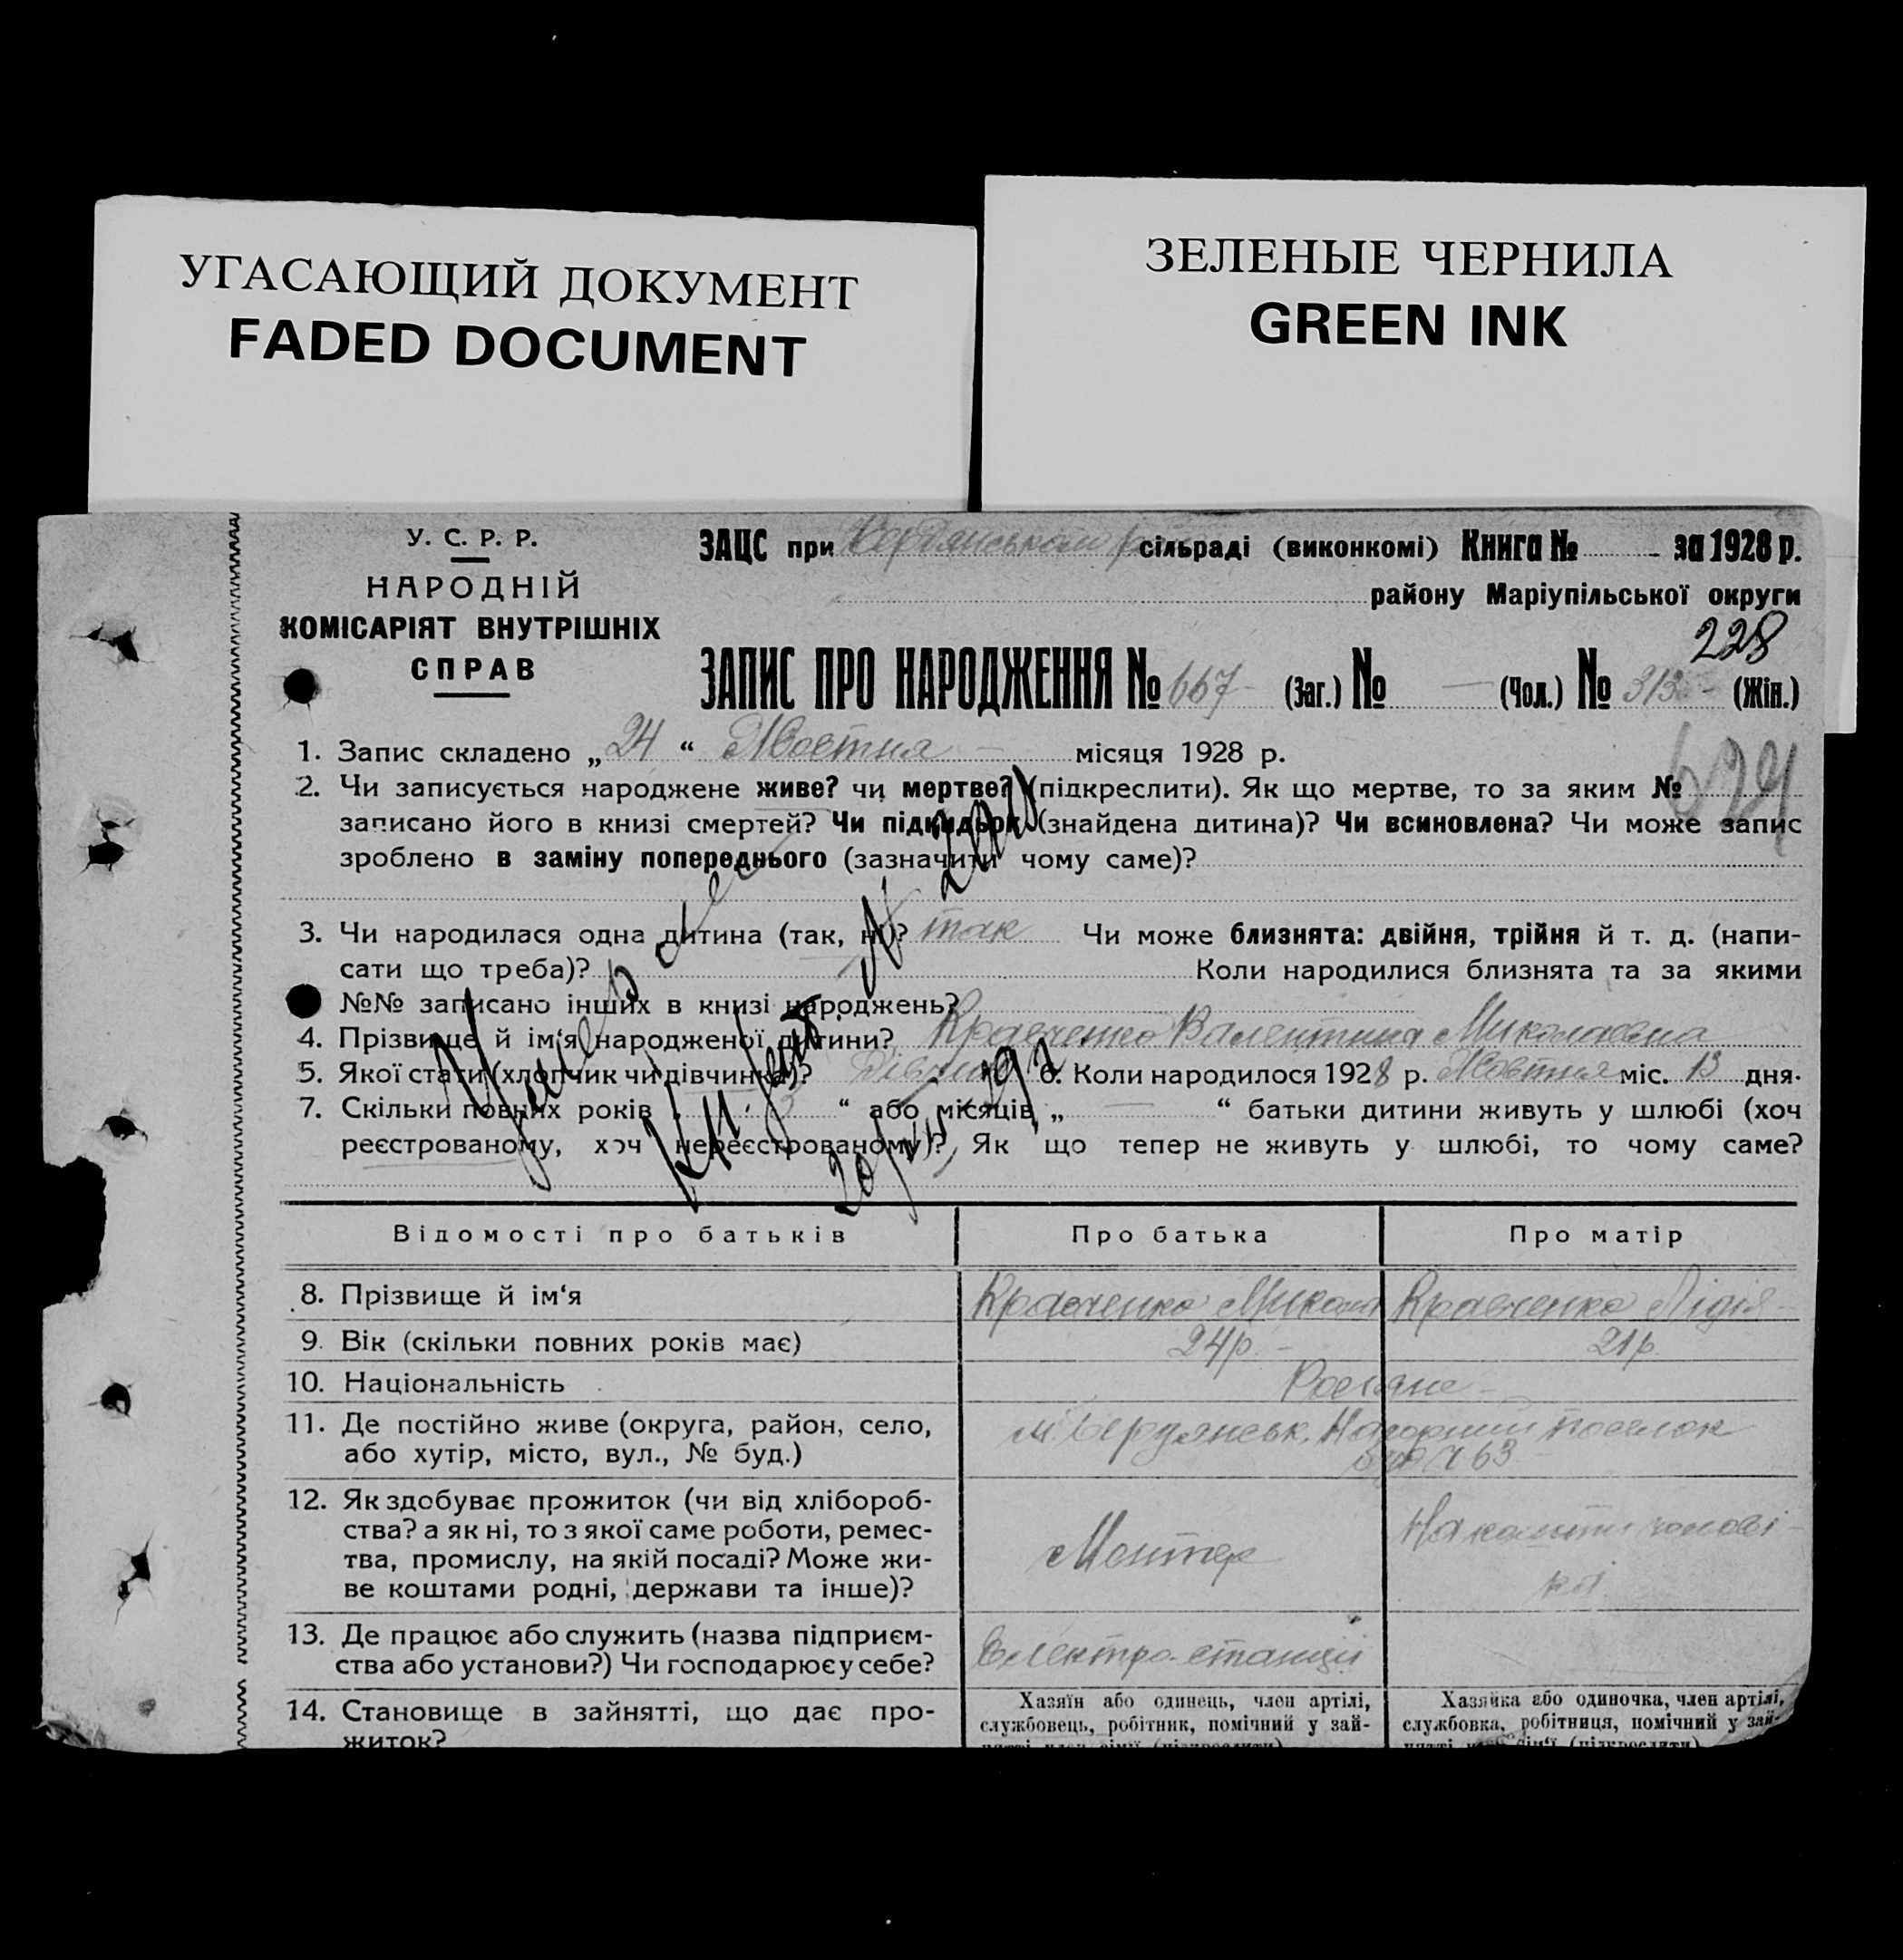 УГАСАЮЩИЙ ДОКУМЕНТ
FADED DOCUMENT
ЗЕЛЕНЫЕ ЧЕРНИЛА
GREEN INK
У. С. Р. Р.
НАРОДНІЙ
КОМІСАРІЯТ ВНУТРІШНІХ
СПРАВ
ЗАЦС при Бердянськом сільраді (виконкомі) Книга № за 1928 р.
району Маріупільської округи
228
ЗАПИС ПРО НАРОДЖЕННЯ № 667 (Заг.) № — (Чол.) № 313 (Жін.)
1. Запис складено „24“ Жовтня місяця 1928 р.
2. Чи записується народжене живе? чи мертве? (підкреслити). Як що мертве, то за яким №
записано його в книзі смертей? Чи підкидьок (знайдена дитина)? Чи всиновлена? Чи може запис
зроблено в заміну попереднього (зазначити чому саме)?
3. Чи народилася одна дитина (так, ні)? так Чи може близнята: двійня, трійня й т. д. (напи-
сати що треба)? Коли народилися близнята та за якими
№№ записано інших в книзі народжень?
4. Прізвище й ім‘я народженої дитини? Кравченко Валентина Миколаевна
5. Якої стати (хлопчик чи дівчинка)? Дівчина 6. Коли народилося 1928 р. Жовтня міс. 13 дня.
7. Скільки повних років „ 3 “ або місяців „ — “ батьки дитини живуть у шлюбі (хоч
реєстрованому, хоч нереєстрованому)? Як що тепер не живуть у шлюбі, то чому саме?
Відомості про батьків Про батька Про матір
8. Прізвище й ім‘я Кравченко Микола Кравченко Лідія
9. Вік (скільки повних років має) 24р. 21р.
10. Національність Росіяне
11. Де постійно живе (округа, район, село, м Бердянськ, Нагорний поселок
або хутір, місто, вул., № буд.) 63
12. Як здобуває прожиток (чи від хлібороб-
ства? а як ні, то з якої саме роботи, ремес-
тва, промислу, на якій посаді? Може жи-
ве коштами родні, держави та інше)?
Монтер
На кошти чолові-
ка
13. Де працює або служить (назва підприєм-
ства або установи?) Чи господарює у себе?
Електро-станції
14. Становище в зайнятті, що дає про-
житок?
Хазяїн або одинець, член артілі,
службовець, робітник, помічний у зай-
нятті член сім‘ї (підкреслити)
Хазяйка або одиночка, член артілі,
службовка, робітниця, помічний у зай-
нятті сім‘ї (підкреслити)